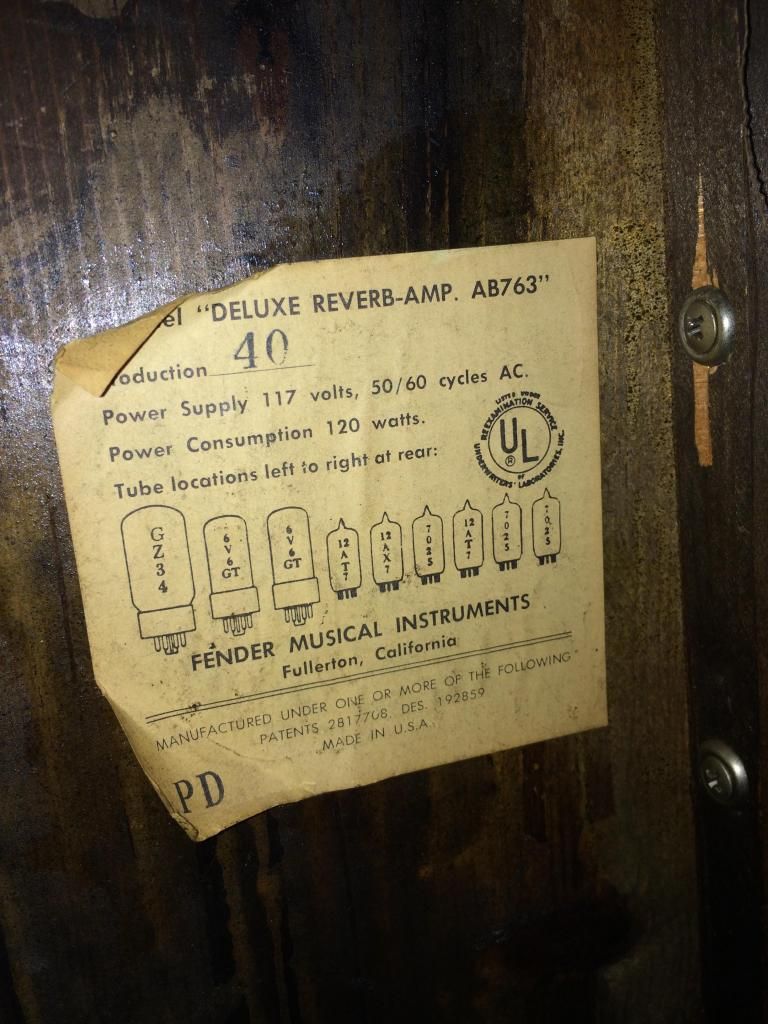 el "DELUXE REVERB-AMP. AB763"
oduction 40
Power Supply 117 volts, 50/60 cycles AC.
Power Consumption 120 watts.
Tube locations left to right at rear:
LISTED UNDER
REEXAMINATION SERVICE
UL
®
OF
UNDERWRITERS' LABORATORIES, INC.
GZ34
6V6GT
6V6GT
12AT7
12AX7
7025
12AT7
7025
7025
FENDER MUSICAL INSTRUMENTS
Fullerton, California
MANUFACTURED UNDER ONE OR MORE OF THE FOLLOWING
PATENTS 2817708, DES. 192859
MADE IN U.S.A.
PD